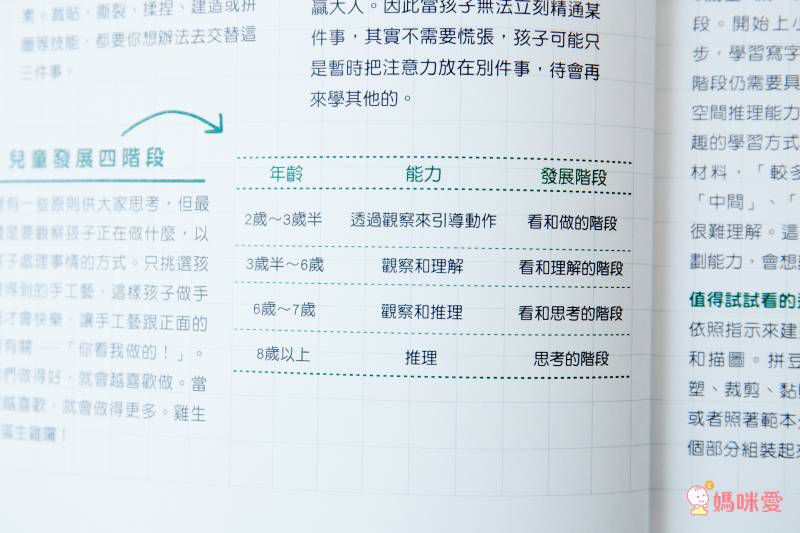 素。裁貼、撕裂、揉捏、建造或拼
圖等技能，都要你想辦法去交替這
三件事。
兒童發展四階段
有一些原則供大家思考，但最
是要觀察孩子正在做什麼，以
孩子處理事情的方式。只挑選孩
得到的手工藝，這樣孩子做手
才會快樂，讓手工藝跟正面的
有關——「你看我做的！」。
們做得好，就會越喜歡做。當
越喜歡，就會做得更多。雞生
蛋生雞囉！
贏大人。因此當孩子無法立刻精通某
件事，其實不需要慌張，孩子可能只
是暫時把注意力放在別件事，待會再
來學其他的。
年齡 能力 發展階段
2歲～3歲半 透過觀察來引導動作 看和做的階段
3歲半～6歲 觀察和理解 看和理解的階段
6歲～7歲 觀察和推理 看和思考的階段
8歲以上 推理 思考的階段
段。開始上小
步，學習寫字
階段仍需要具
空間推理能力
趣的學習方式
材料，「較多
「中間」、「
很難理解。這
劃能力，會想
值得試試看的
依照指示來建
和描圖。拼豆
塑、裁剪、黏
或者照著範本
個部分組裝起來
媽咪愛